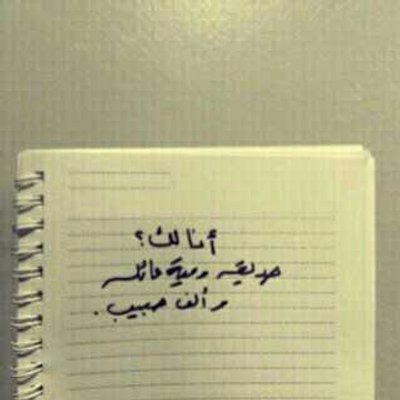 أنا لك؟
صديقة ومية عائلة
و ألف حبيب.